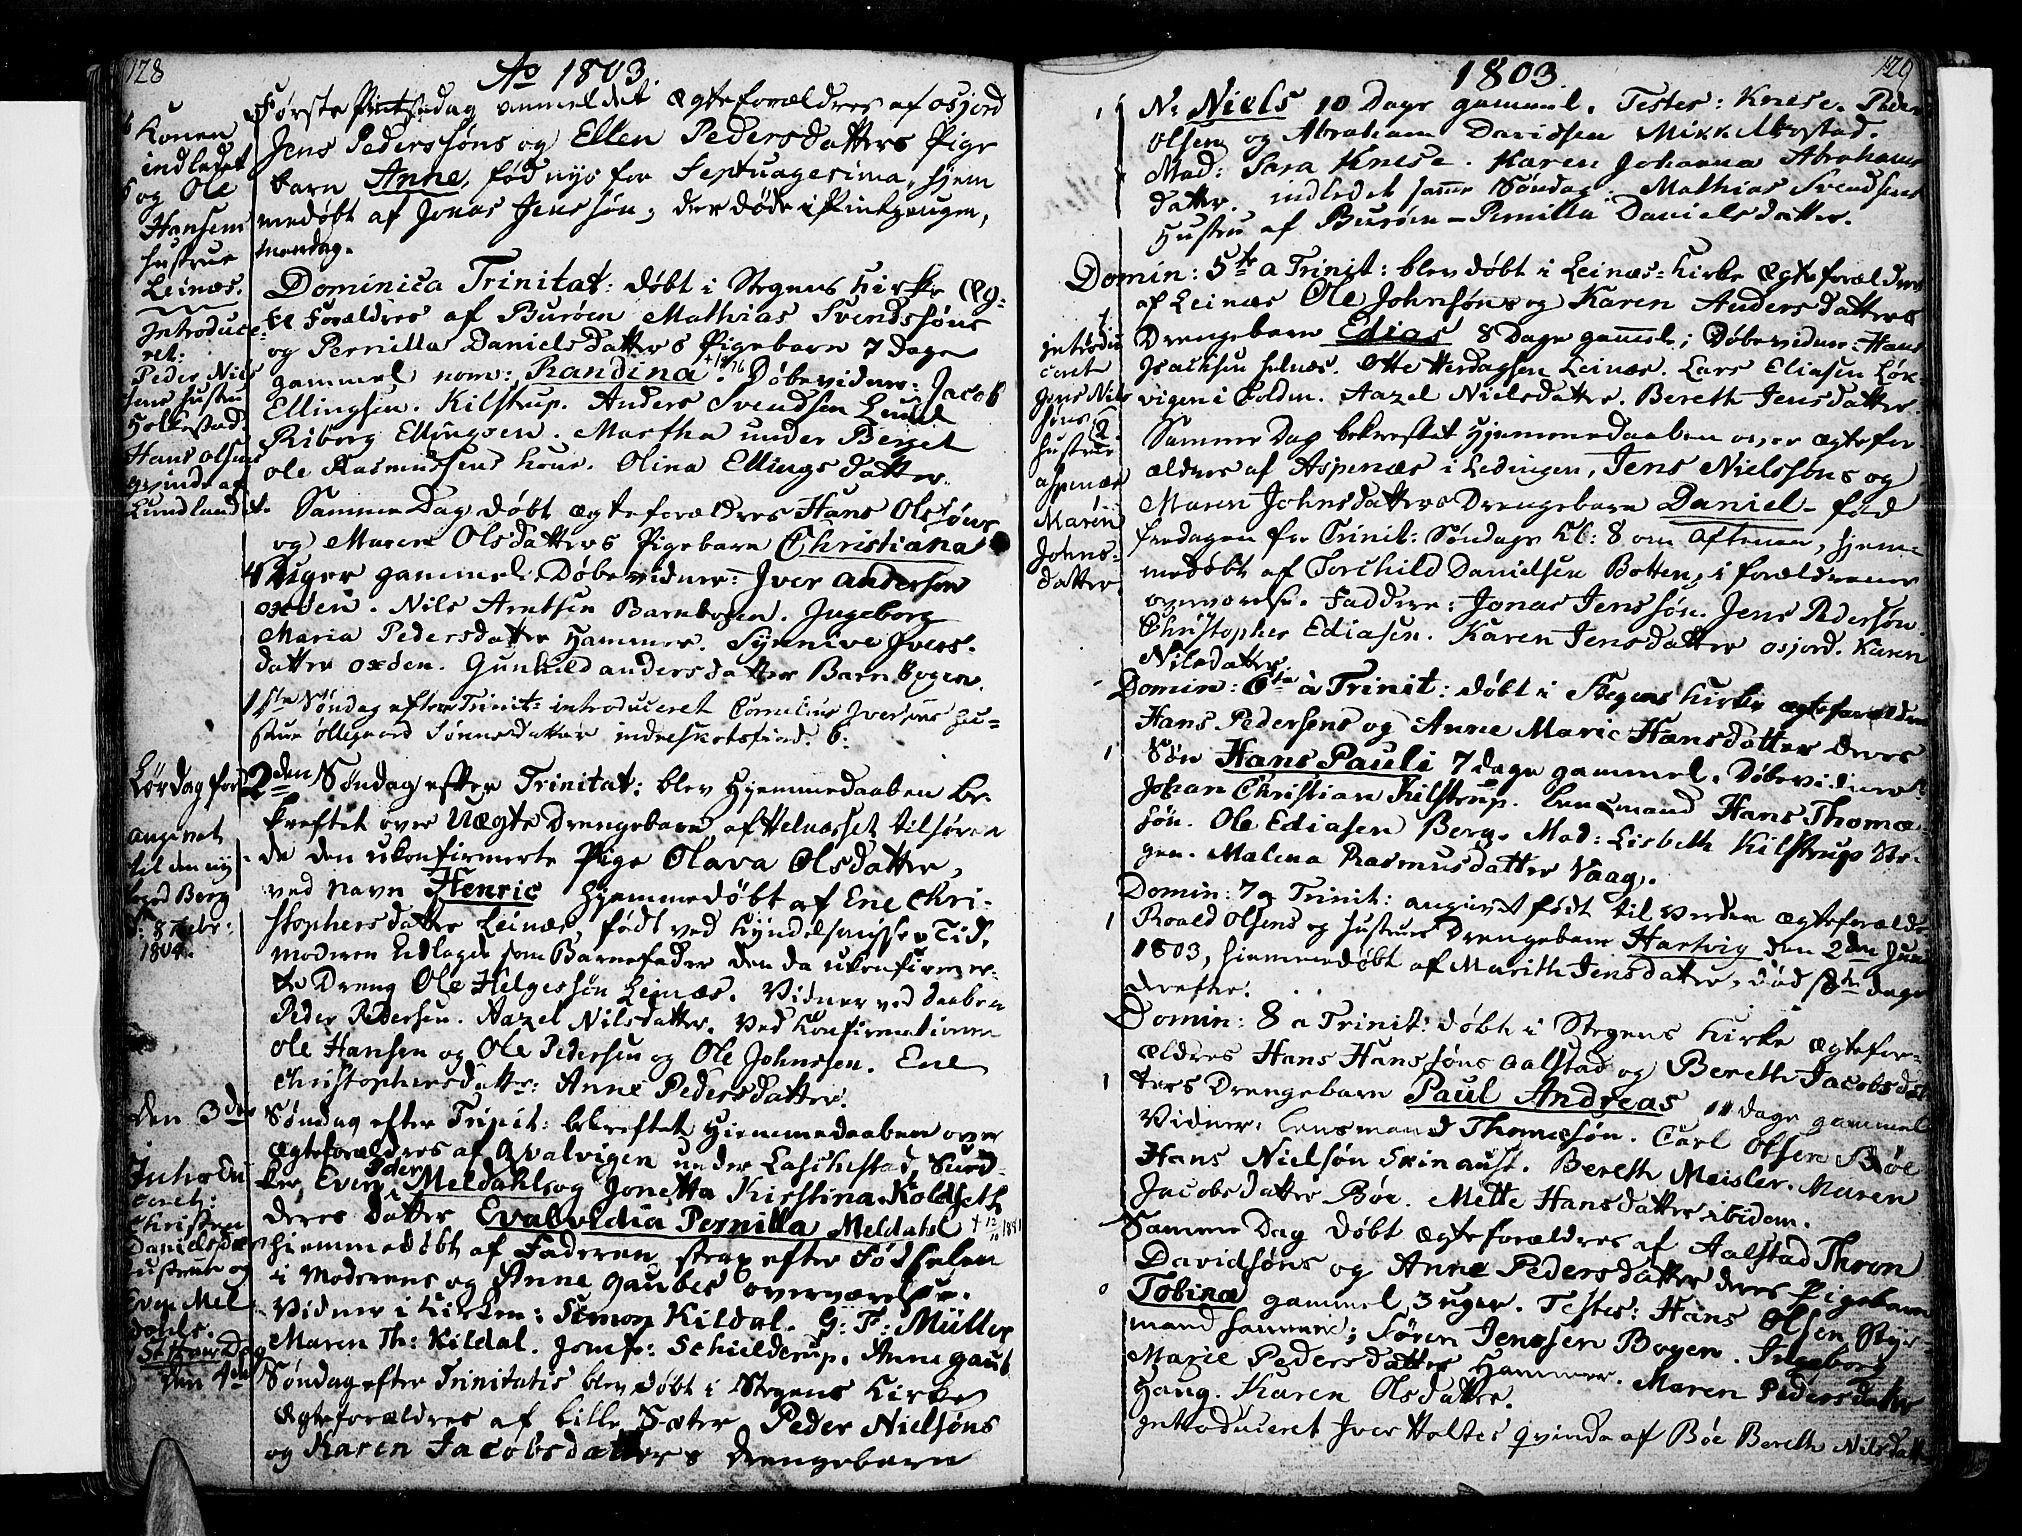 128
Ao 1803.
Konen
indledet
og Ole
Hansens
hustrue
Leinæs.
Introduce-
ret:
Peder Niel
sens hustru
Holkestad.
Hans Olsens
qvinde af
Lundlandet.
Første Pintsedag anmeldet Ægteforældres af Osjord
Jens Pederssøns og Ellen Pedersdatters Pige
barn Anne, fød nys for Septuagesima, hjem
medøbt af Jonas Jenssøn, der døde i
mandag.
Dominica Trinitat: døbt i Stegens Kirke Æg-
te Forældres af Burøen Mathias Svendssøns
og Pernilla Danielsdatters Pigebarn 7 dage
gammel nom: Randina. Døbevidner: Jacob
Ellingsen. Kilstrup. Anders Svendsen
Riborg Ellingsen. Martha under Berget
Ole Rasmussens kone. Olina Ellingsdatter.
Samme Dag døbt Ægteforældres Hans Olssøns
og Maren Olsdatters Pigebarn Christiana
4 Uger gammel. Døbevidner: Iver Anderson
oxøen. Nils Arntsen Barnbogen. Ingeborg
Maria Pedersdatter Hammer. Synnive Ivers-
datter oxøen. Gunhild andersdatter Barnbogen.
1ste Søndag efter Trinit: introduceret Cornelius Iversens Hu-
strue Ollegaard Sønnesdatter
Lørdag for
angivet
til den ny
Berg
8 Febr:
1804.
2den Søndag efter Trinitat: blev Hjemmedaaben be-
kreftet over Uægte Drengebarn af Helnæsset tilhøren
de den ukonfirmerte Pige Olava Olsdatter,
ved navn Henric hjemmedøbt af Ene Chri-
stophersdatter Leinæs, født ved Kyndelsmisse Tid,
moderen Udlagde som Barnefader den da ukonfirmer-
te Dreng Ole Helgessøn Leinæs. Vidner ved daaben
Peder Pedersen. Aazel Nilsdatter. Ved Konfirmationen
Ole Hansen og Ole Pedersen og Ole Johnssen. Ene
Christophersdatter: Anne Pedersdatter.
den 3die
Introdu
ceret:
Christen
Daniels
hustrue og
Even Mel
dahls.
St Hans Dag
den 4de
Søndag efter Trinit: bekreftet Hjemmedaaben over
Ægteforældres af Qvalvigen under Laschestad,
Even Meldahls og Jonetta Kirstina Koldseth
deres datter Evalvidia Pernilla Meldahl
hjemmedøbt af Faderen strax efter Fødselen
i Moderens og Anne Gaubes overværelse.
Vidner i Kirken: Simon Kildal. G: F: Müller
Maren Th: Kildal. Jomfr: Schielderup. Anne Gaub
Søndag efter Trinitatis blev døbt i Stegens Kirke
Ægteforældres af Lille Sæter Peder Nielsøns
og Karen Jacobsdatters Drengebarn
129
1803.
N: Niels 10 Dage gammel. Testes: Knese. Peder
Olsen og Abraham Davidsen
Mad: Sara Knese. Karen Johanna Abrahams
datter. indledet samme Søndag: Mathias Svendsens
Hustru af Burøen - Pernilla Danielsdatter.
Domin: 5te a Trinit: blev døbt i Leinæs-Kirke Ægteforældres
af Leinæs Ole Johnsøns og Karen Andersdatters
Drengebarn Edias 8 Dage gammel; Døbevidner: Hans
Isachsen Helnæs. Otte Herdagsen Leinæs. Lars Eliasen Løk-
vigen i Folden. Aazel Nielsdatter. Bereth Jensdatter.
introdu
ceret
Jens Niel
søns
hustrue
aspenæs
Maren
Johns-
datter.
Samme Dag bekreftet Hjemmedaaben over Ægtefor-
ældres af Aspenæs i Ledingen, Jens Nielssøns og
Maren Johnsdatters Drengebarn Daniel - fød
fredagen for Trinit: Søndag kl: 8 om Aftenen, hjem-
medøbt af Torchild Danielsen Botten, i forældrenes
overværelse. Faddere: Jonas Jenssøn. Jens Pederssøn.
Christopher Ediasen. Karen Jensdatter osjord. Karen
Nilsdatter.
Domin: 6te a Trinit: døbt i Stegens Kirke ægteforældres
Hans Pedersens og Anne Marie Hansdatter deres
Søn Hans Pauli 7 dage gammel. Døbevidner:
Johan Christian Kilstrup. Lensmand Hans Thomæ-
søn. Ole Ediasen Berg. Mad: Lisbeth Kilstrup
gen. Malena Rasmusdatter Vaag.
Domin: 7 a Trinit: angivet født til Verden Ægteforældr
Roald Olsens og Hustrues Drengebarn Hartvig den 2den Juni
1803, hiemmedøbt af Marith Jensdatter, død 8 dage
derefter.
Domin: 8 a Trinit: døbt i Stegens Kirke Ægtefor-
ældres Hans Hanssøns Aalstad og Bereth Jacobsdat
ters Drengebarn Paul Andreas 11 dage gammel
Vidner: Lensmand Thomæsøn. Carl Olsen Bøe
Hans Nielsøn Skinaust. Bereth Meisler. Maren
Jacobsdatter Bøe. Mette Hansdatter ibidem.
Samme Dag døbt Ægteforældres af Aalstad Thron
Davidsøns og Anne Pedersdatter deres Pigebarn
Tobina gammel 3 uger. Testes: Hans Olsen Styr-
mand Hammer; Søren Jenssen Bogen. Ingeborg
Marie Pedersdatter Hammer. Maren Pedersdatter
Haug. Karen Olsdatter.
Introduceret Iver Holtes qvinde af Bøe Bereth Nilsdatt